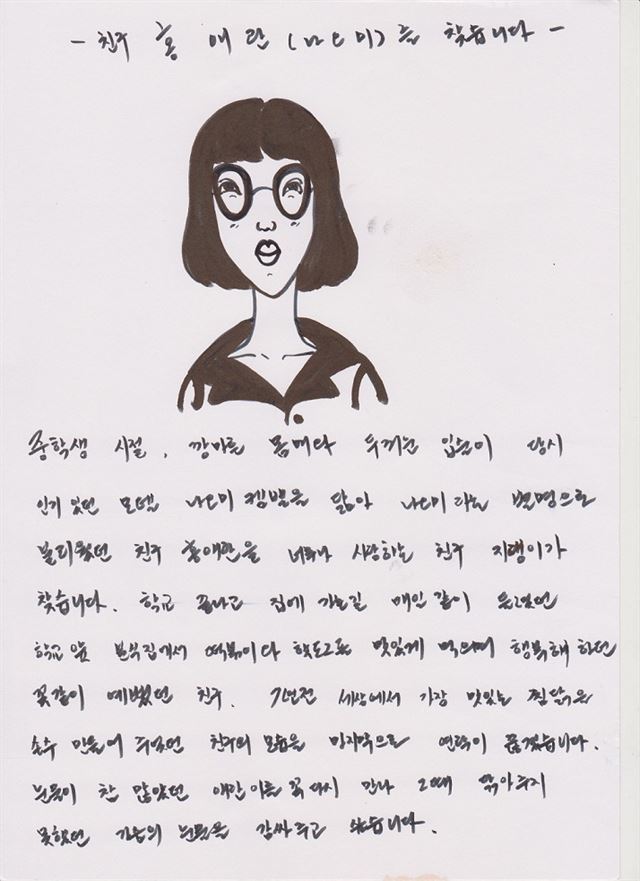 - 친구 홍 애란 (나오미)를 찾습니다 -
중학생 시절, 깡마른 몸매다 두꺼운 입술이 당시
인기 있던 모델 나오미 캠벨을 닮아 나오미 라는 별명으로
불리웠던 친구 홍애란을 너무나 사랑하는 친구 지랭이가
찾습니다. 학교 끝나고 집에 가는길 매일 같이 들렸던
학교 앞 분식집에서 떡볶이다 핫도그를 맛있게 먹으며 행복해 하던
꽃같이 예뻤던 친구. 7년전 세상에서 가장 맛있는 찜닭을
손수 만들어 주었던 친구의 모습을 마지막으로 연락이 끊겼습니다.
눈물이 참 많았던 애란이를 꼭 다시 만나 그때 닦아주지
못했던 가슴의 눈물을 감싸주고 싶습니다.